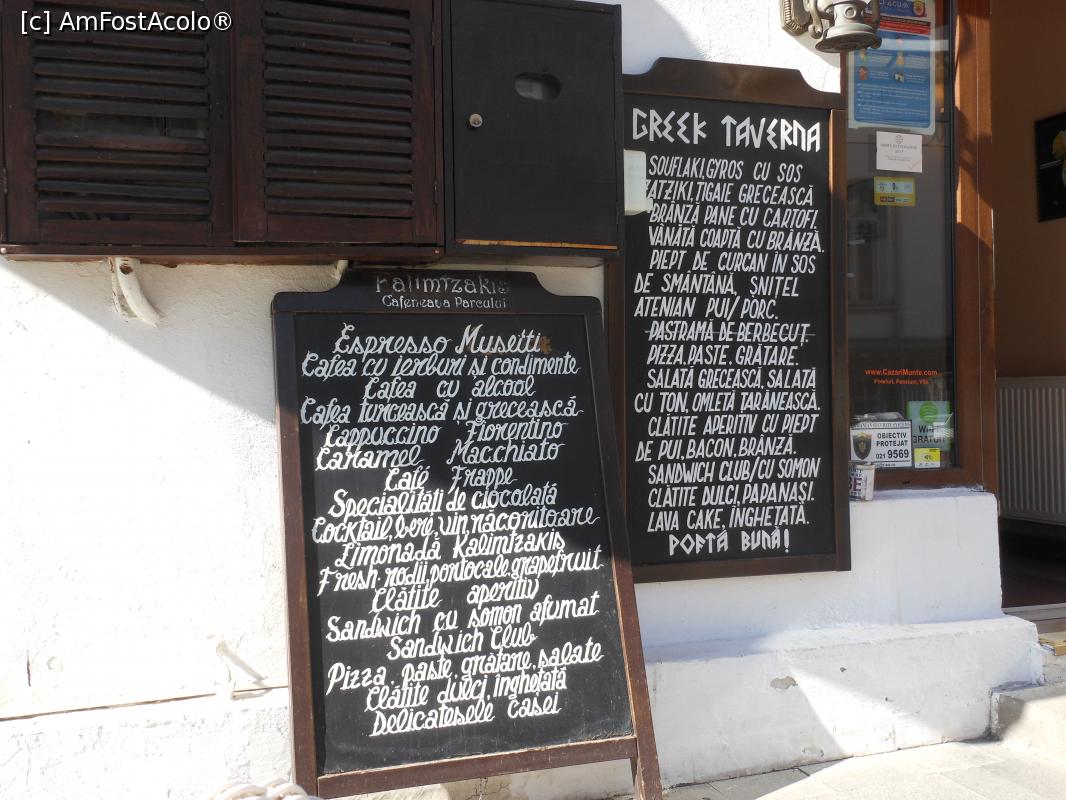 [c] AmFostAcolo®
Kalimtzakis
Cafeneaua Parcului
Espresso Musetti
Cafea cu ierburi și condimente
Cafea cu alcool
Cafea turcească și grecească
Cappuccino Fiorentino
Caramel Macchiato
Café Frappe
Specialități de ciocolată
Cocktail, bere, vin, răcoritoare
Limonadă Kalimtzakis
Fresh rodii, portocale, grapefruit
Clătite aperitiv
Sandwich cu somon afumat
Sandwich Club
Pizza, paste, grătare, salate
Clătite dulci, înghețată
Delicatesele casei
GREEK TAVERNA
SOUFLAKI, GYROS CU SOS
ZATZIKI, TIGAIE GRECEASCĂ
BRÂNZĂ PANE CU CARTOFI.
VÂNĂTĂ COAPTĂ CU BRÂNZĂ.
PIEPT DE CURCAN ÎN SOS
DE SMÂNTÂNĂ, ȘNIȚEL
ATENIAN PUI/PORC.
PASTRAMĂ DE BERBECUȚ
PIZZA. PASTE. GRĂTARE.
SALATĂ GRECEASCĂ, SALATĂ
CU TON, OMLETĂ ȚĂRĂNEASCĂ.
CLĂTITE APERITIV CU PIEPT
DE PUI, BACON, BRÂNZĂ.
SANDWICH CLUB/CU SOMON
CLĂTITE DULCI, PAPANAȘI.
LAVA CAKE, ÎNGHEȚATĂ.
POFTĂ BUNĂ!
www.CazariMunte.com
Hoteluri, Pensiuni, Vile
OBIECTIV
PROTEJAT
021 9569
WI-FI
GRATUIT